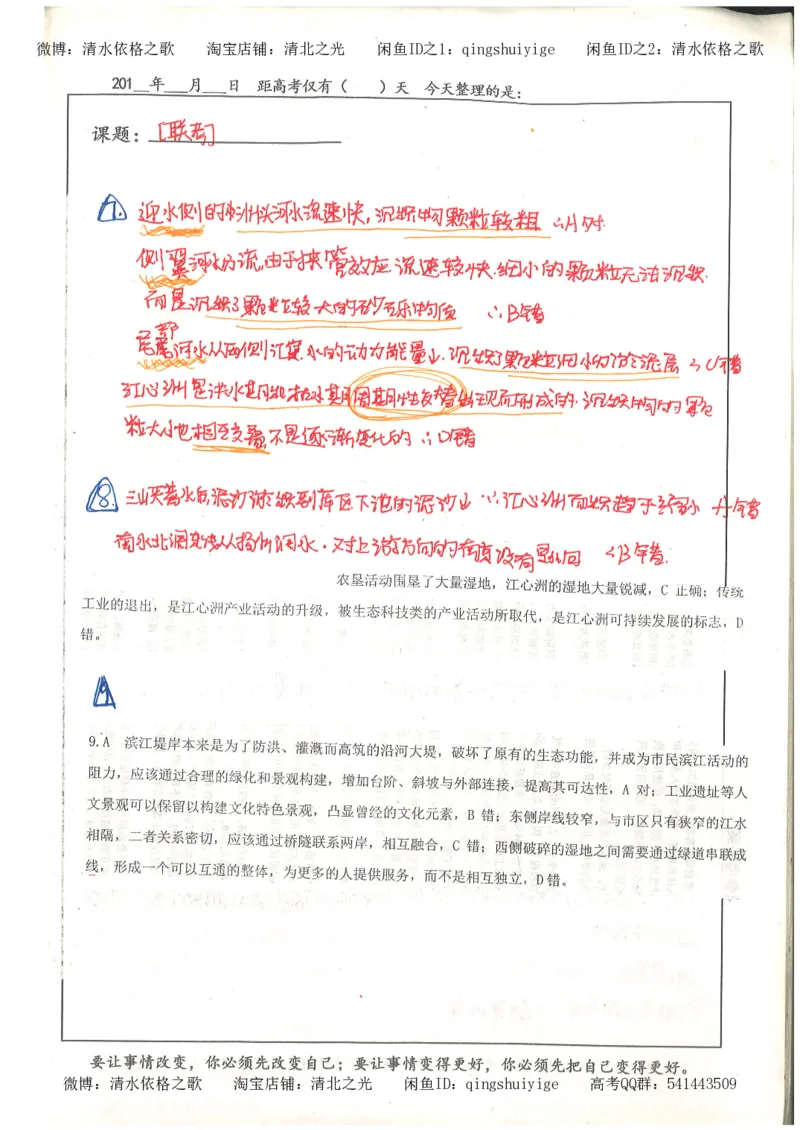 微博：清水依格之歌 淘宝店铺：清北之光 闲鱼ID之1：qingshuiyige 闲鱼ID之2：清水依格之歌
201__年___月___日 距高考仅有（ ）天 今天整理的是：
课题：[联考]
7. 迎水侧的沙洲头河水流速快，沉积物颗粒较粗 ∴A对
侧翼河水分流，由于狭管效应，流速较快，细小的颗粒无法沉积
而是沉积了颗粒较大的砂石乐物质 ∴B错
尾部河水从两侧汇聚，水的动力能量小，沉积了颗粒细小的淤泥层 ∴C错
江心洲是洪水期和枯水期周期性交替出现而形成的，沉积物的颗
粒大小也相互交叠，不是逐渐变化的 ∴D错
8. 三峡蓄水后泥沙淤积到库区，下泄的泥沙少 ∴江心洲面积趋于缩小 A错
南水北调东线从扬州调水，对上游方向的南京没有影响 ∴B错
农垦活动围垦了大量湿地，江心洲的湿地大量锐减，C 正确；传统
工业的退出，是江心洲产业活动的升级，被生态科技类的产业活动所取代，是江心洲可持续发展的标志，D
错。
9
9.A 滨江堤岸本来是为了防洪、灌溉而高筑的沿河大堤，破坏了原有的生态功能，并成为市民滨江活动的
阻力，应该通过合理的绿化和景观构建，增加台阶、斜坡与外部连接，提高其可达性，A 对；工业遗址等人
文景观可以保留以构建文化特色景观，凸显曾经的文化元素，B 错；东侧岸线较窄，与市区只有狭窄的江水
相隔，二者关系密切，应该通过桥隧联系两岸，相互融合，C 错；西侧破碎的湿地之间需要通过绿道串联成
线，形成一个可以互通的整体，为更多的人提供服务，而不是相互独立，D 错。
要让事情改变，你必须先改变自己；要让事情变得更好，你必须先把自己变得更好。
微博：清水依格之歌 淘宝店铺：清北之光 闲鱼ID：qingshuiyige 高考QQ群：541443509